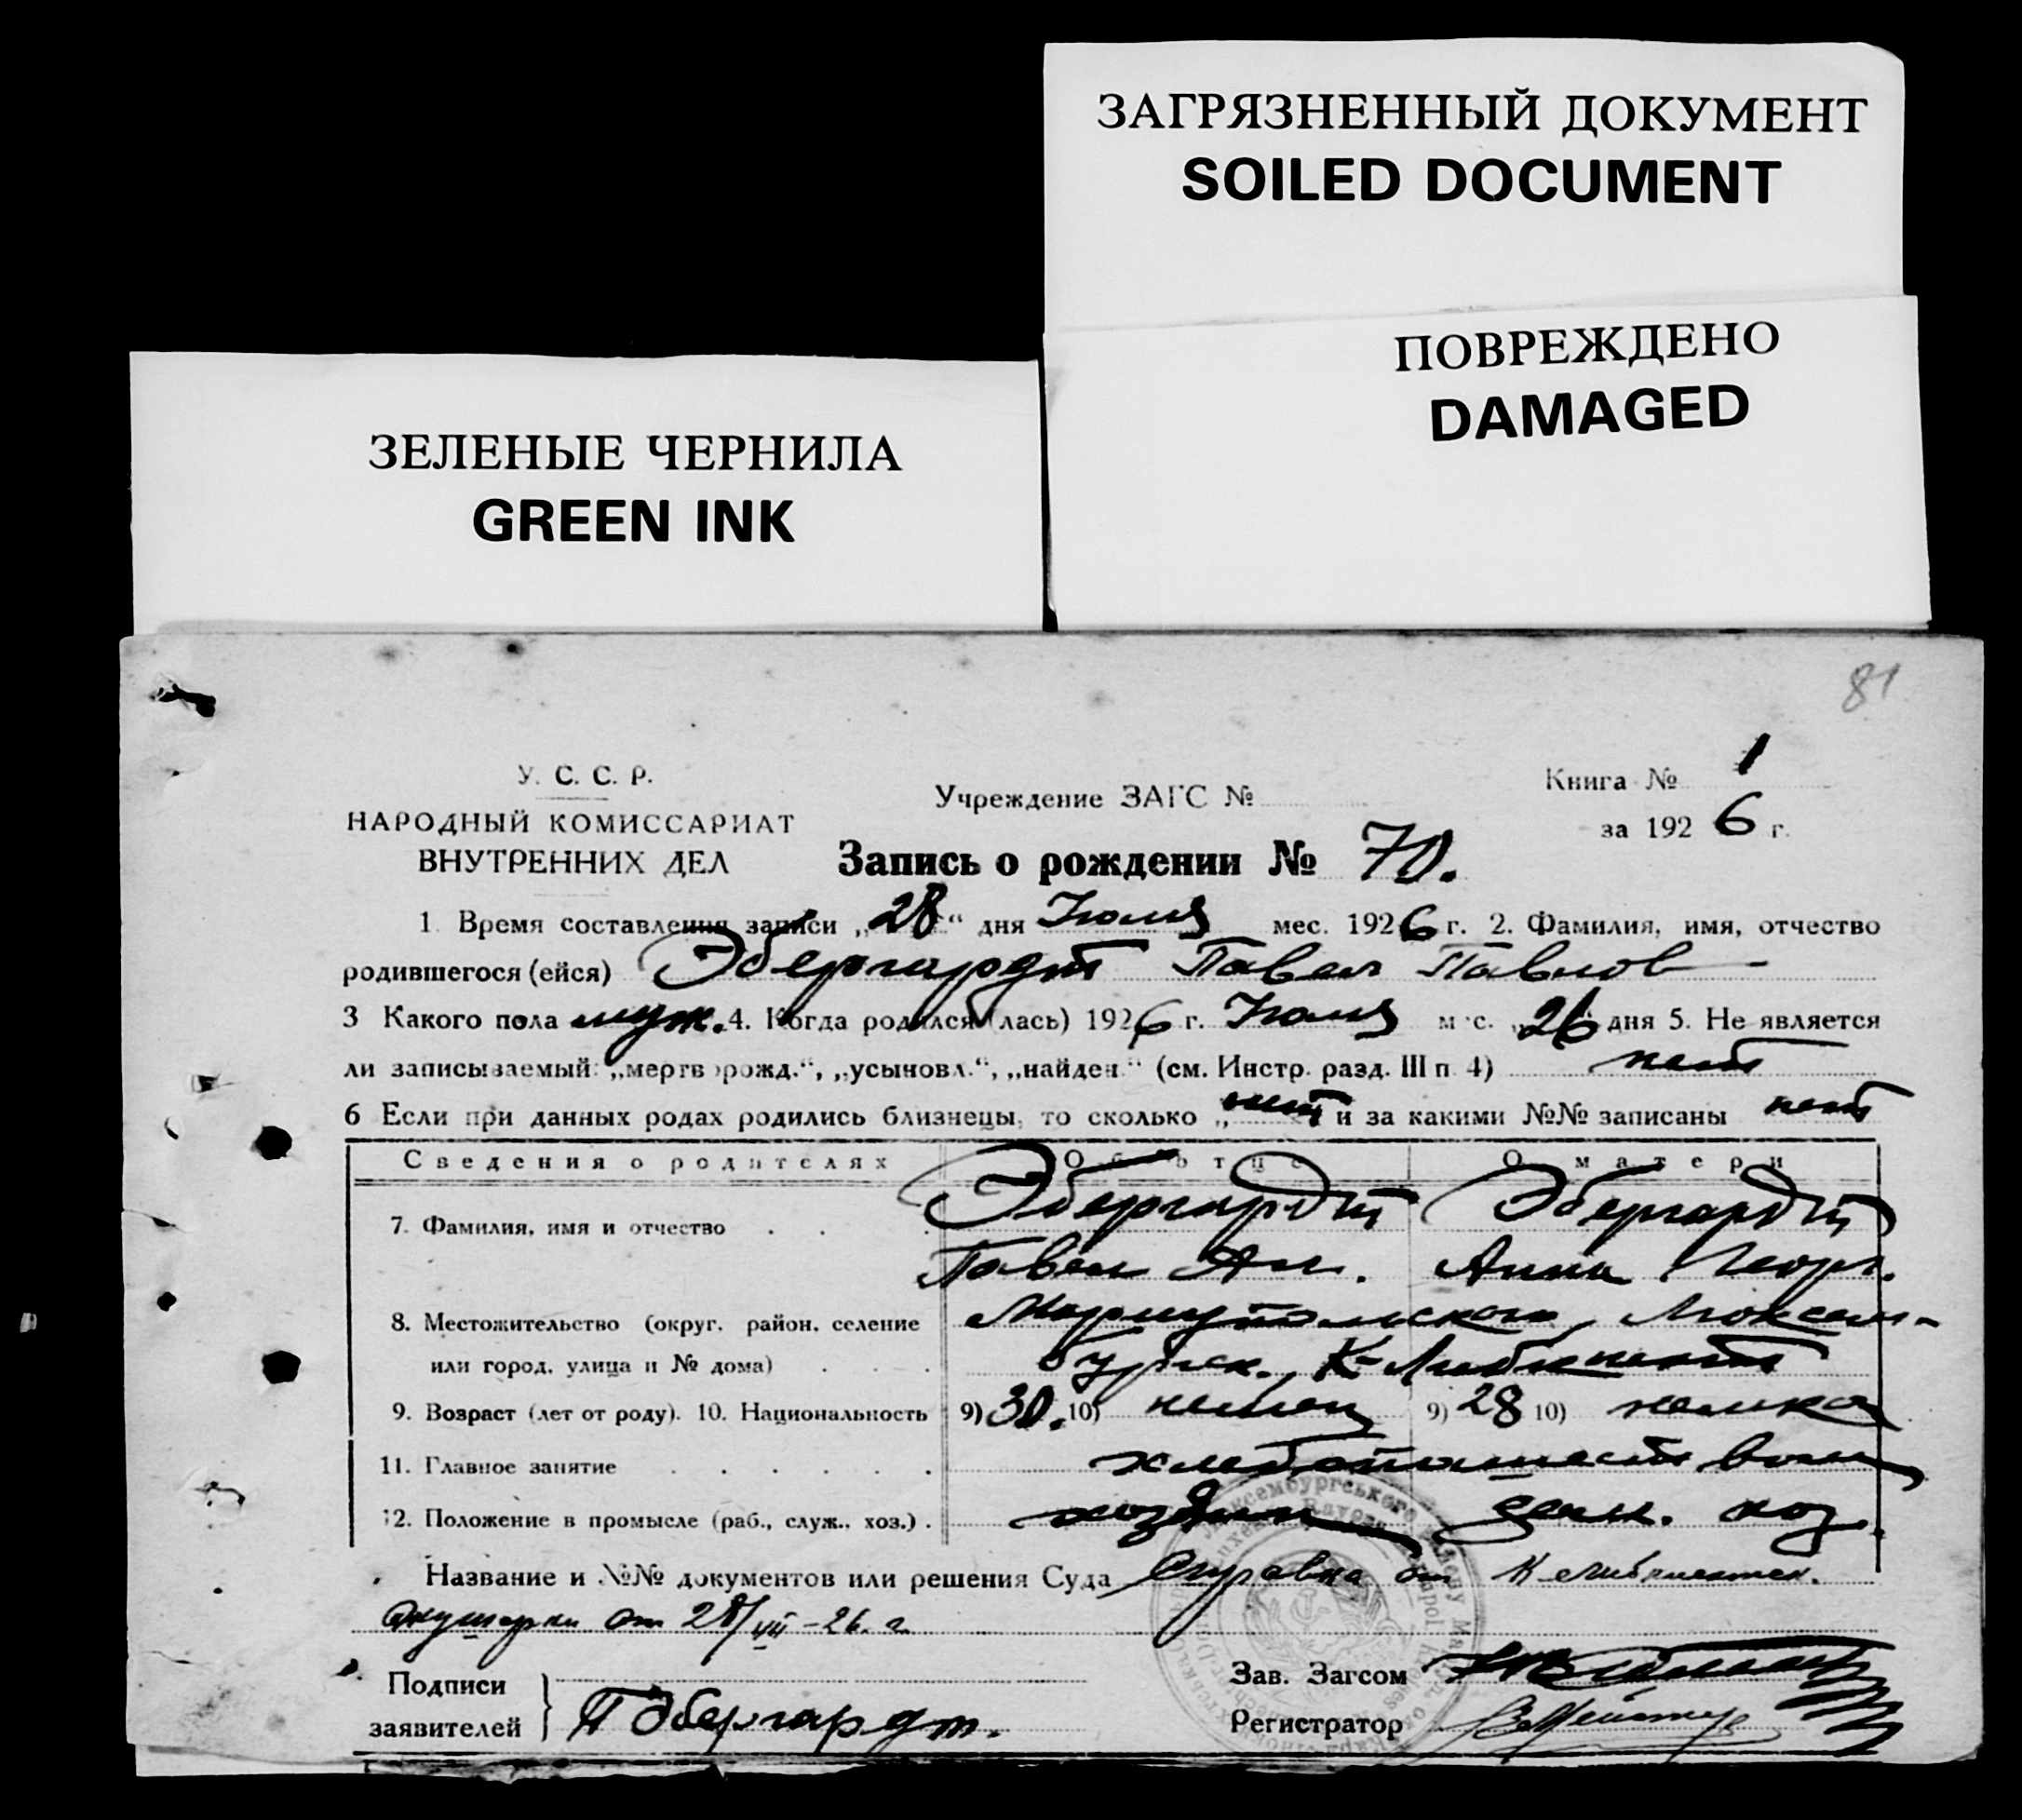 ЗАГРЯЗНЕННЫЙ ДОКУМЕНТ
SOILED DOCUMENT
ПОВРЕЖДЕНО
DAMAGED
ЗЕЛЕНЫЕ ЧЕРНИЛА
GREEN INK
81
У. С. С. Р.
НАРОДНЫЙ КОМИССАРИАТ
ВНУТРЕННИХ ДЕЛ
Учреждение ЗАГС №
Книга № 1
за 1926 г.
Запись о рождении № 70.
1. Время составления записи „28“ дня Июля мес. 1926 г. 2. Фамилия, имя, отчество
родившегося (ейся) Эбергардт Павел Павлов
3 Какого пола муж. 4. Когда родился (лась) 1926 г. Июля мес. „26 дня 5. Не является
ли записываемый: „мертворожд.“, „усыновл.“, „найден“ (см. Инстр. разд. III п. 4) нет
6 Если при данных родах родились близнецы, то сколько „нет и за какими №№ записаны нет
Сведения о родителях Об отце О матери
7. Фамилия, имя и отчество . . . Эбергардт Эбергардт
Павел Ан. Анна Георг.
8. Местожительство (округ, район, селение Мариупольского, Люксем-
или город, улица и № дома) . . . бургск. К-
9. Возраст (лет от роду). 10. Национальность 9) 30. 10) немец 9) 28 10) немка
11. Главное занятие . . . . . . хлебопашество
12. Положение в промысле (раб., служ., хоз.) . хозяин
Название и №№ документов или решения Суда Справка от
акушерки от 28/VII-26. г.
Подписи
заявителей } П Эбергардт.
Зав. Загсом
Регистратор